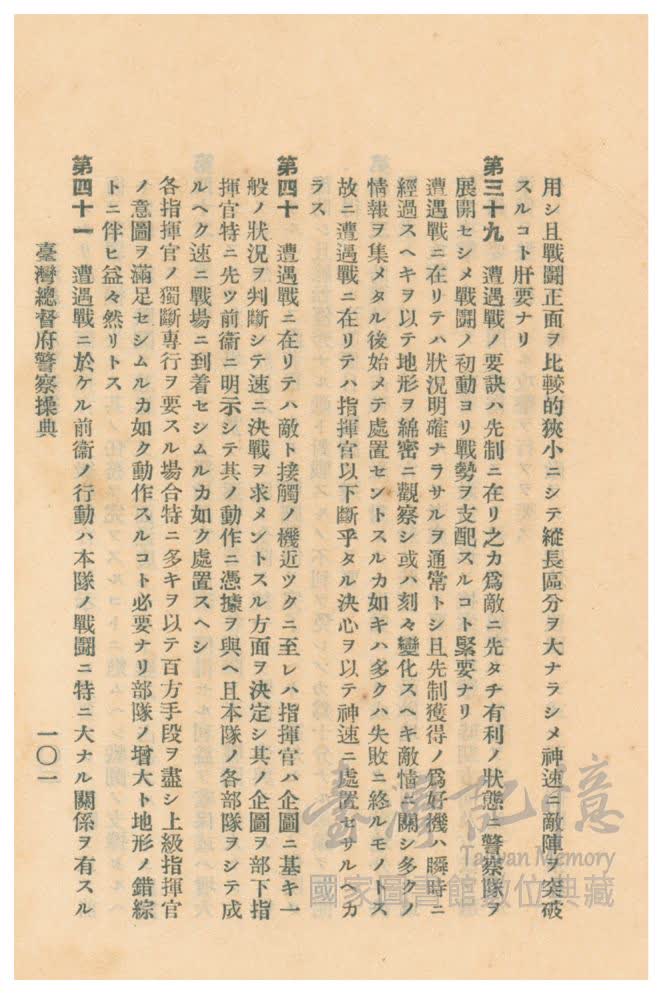 用シ且戰鬪正面ヲ比較的狹小ニシテ縱長區分ヲ大ナラシメ神速ニ敵陣ヲ突破
スルコト肝要ナリ
第三十九　遭遇戰ノ要訣ハ先制ニ在リ之カ爲敵ニ先タチ有利ノ狀態ニ警察隊ヲ
展開セシメ戰鬪ノ初動ヨリ戰勢ヲ支配スルコト緊要ナリ
遭遇戰ニ在リテハ狀況明確ナラサルヲ通常トシ且先制獲得ノ爲好機ハ瞬時ニ
經過スヘキヲ以テ地形ヲ綿密ニ觀察シ或ハ刻々變化スヘキ敵情ニ關シ多クノ
情報ヲ集メタル後始メテ處置セントスルカ如キハ多クハ失敗ニ終ルモノトス
故ニ遭遇戰ニ在リテハ指揮官以下斷乎タル決心ヲ以テ神速ニ處置セサルヘカ
ラス
第四十　遭遇戰ニ在リテハ敵ト接觸ノ機近ツクニ至レハ指揮官ハ企圖ニ基キ一
般ノ狀況ヲ判斷シテ速ニ決戰ヲ求メントスル方面ヲ決定シ其ノ企圖ヲ部下指
揮官特ニ先ツ前衞ニ明示シテ其ノ動作ニ憑據ヲ與ヘ且本隊ノ各部隊ヲシテ成
ルヘク速ニ戰場ニ到着セシムルカ如ク處置スヘシ
各指揮官ノ獨斷專行ヲ要スル場合特ニ多キヲ以テ百方手段ヲ盡シ上級指揮官
ノ意圖ヲ滿足セシムルカ如ク動作スルコト必要ナリ部隊ノ增大ト地形ノ錯綜
トニ伴ヒ益々然リトス
第四十一　遭遇戰ニ於ケル前衞ノ行動ハ本隊ノ戰鬪ニ特ニ大ナル關係ヲ有スル
臺灣總督府警察操典
一〇一
臺灣記憶
Taiwan Memory
國家圖書館數位典藏